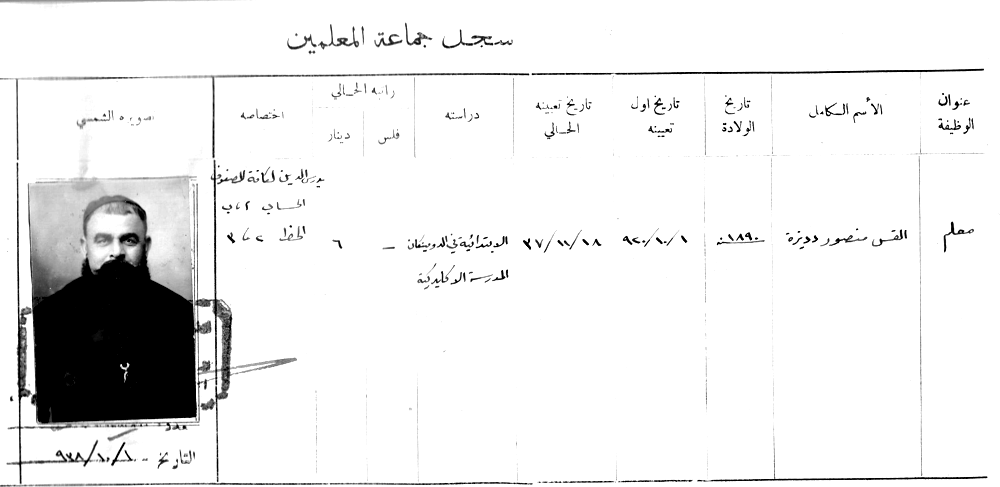 سجل جماعة المعلمين
عنوان الوظيفة
الأسم الكامل
تاريخ الولادة
تاريخ اول تعيينه
تاريخ تعيينه الحالي
دراسته
راتبه الحالي
فلس
دينار
اختصاصه
صورته الشمسي
معلم
القس منصور دديزة
١٨٩٠
٩٢٠/١٠/١
٣٧/١١/١٨
الابتدائية في الدومنيكان
المدرسة الاكليركية
-
٦
يدرس الدين لكافة الصفوف
الحساب ١ ، ب
الخط ٢ ، ٣
التاريخ ٩٣٨/١٠/١